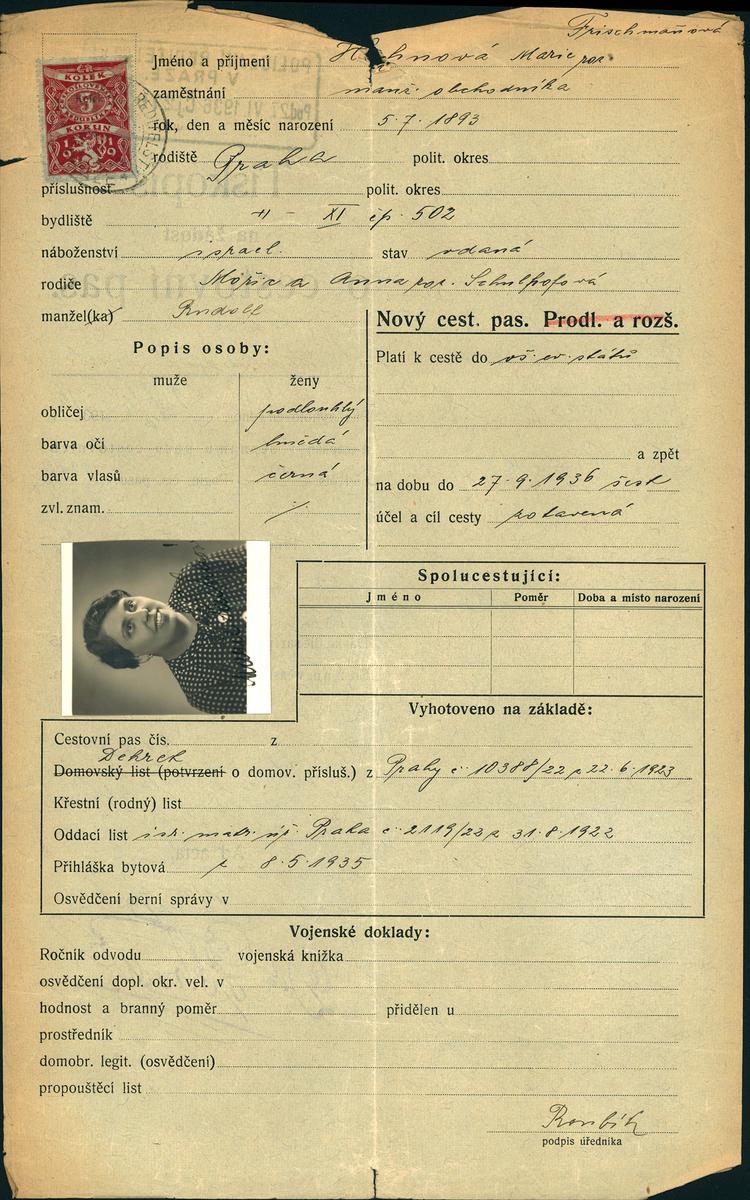 Frischmaňová
Jméno a příjmení H hnová Marie roz.
zaměstnání manž. obchodníka
rok, den a měsíc narození 5.7.1893
rodiště Praha polit. okres
příslušnost polit. okres
bydliště -"- XI čp. 502
náboženství israel. stav vdaná
rodiče Mořic a Anna roz. Schulhofová
manžel(ka) Rudolf
Nový cest. pas. Prodl. a rozš.
Popis osoby:
Platí k cestě do vš. ev. států
muže ženy
obličej podlouhlý
barva očí hnědá
a zpět
barva vlasů černá
na dobu do 27.9.1936 šest
zvl. znam. /.
účel a cíl cesty zotavená
Spolucestující:
Jméno Poměr Doba a místo narození
Vyhotoveno na základě:
Cestovní pas čís. z
Dekret
Domovský list (potvrzení o domov. přísluš.) z Prahy č. 10388/22 z 22.6.1923
Křestní (rodný) list
Oddací list isr. matr. úř. Praha č. 2119/22 z 31.8.1922
Přihláška bytová z 8.5.1935
Osvědčení berní správy v
Vojenské doklady:
Ročník odvodu vojenská knížka
osvědčení dopl. okr. vel. v
hodnost a branný poměr přidělen u
prostředník
domobr. legit. (osvědčení)
propouštěcí list
podpis úředníka
KOLEK
5
KORUN